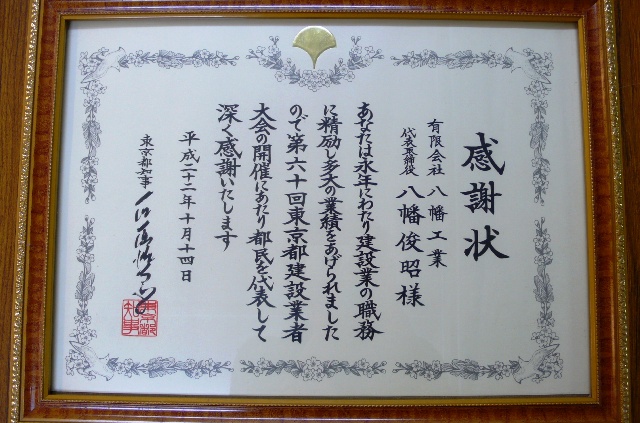 感謝状
有限会社 八幡工業
代表取締役 八幡俊昭様
あなたは永年にわたり建設業の職務
に精励し多大の業績をあげられました
ので第六十回東京都建設業者
大会の開催にあたり都民を代表して
深く感謝いたします
平成二十二年十月十四日
東京都知事 石原慎太郎
東京都知事